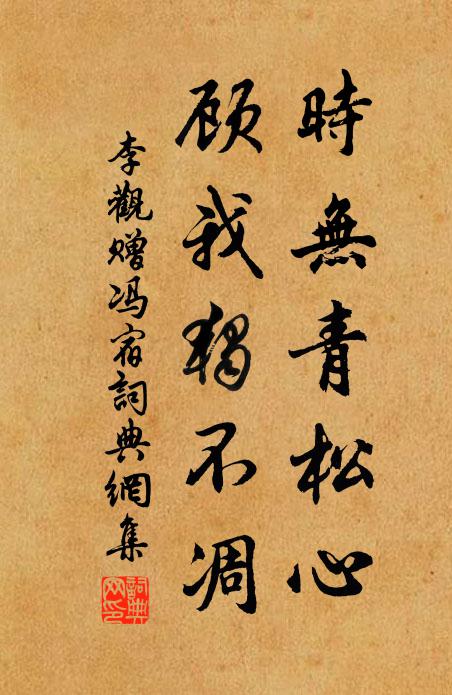 時無青松心
顧我獨不凋
李觀贈馮宿詞典網集
詞典網印